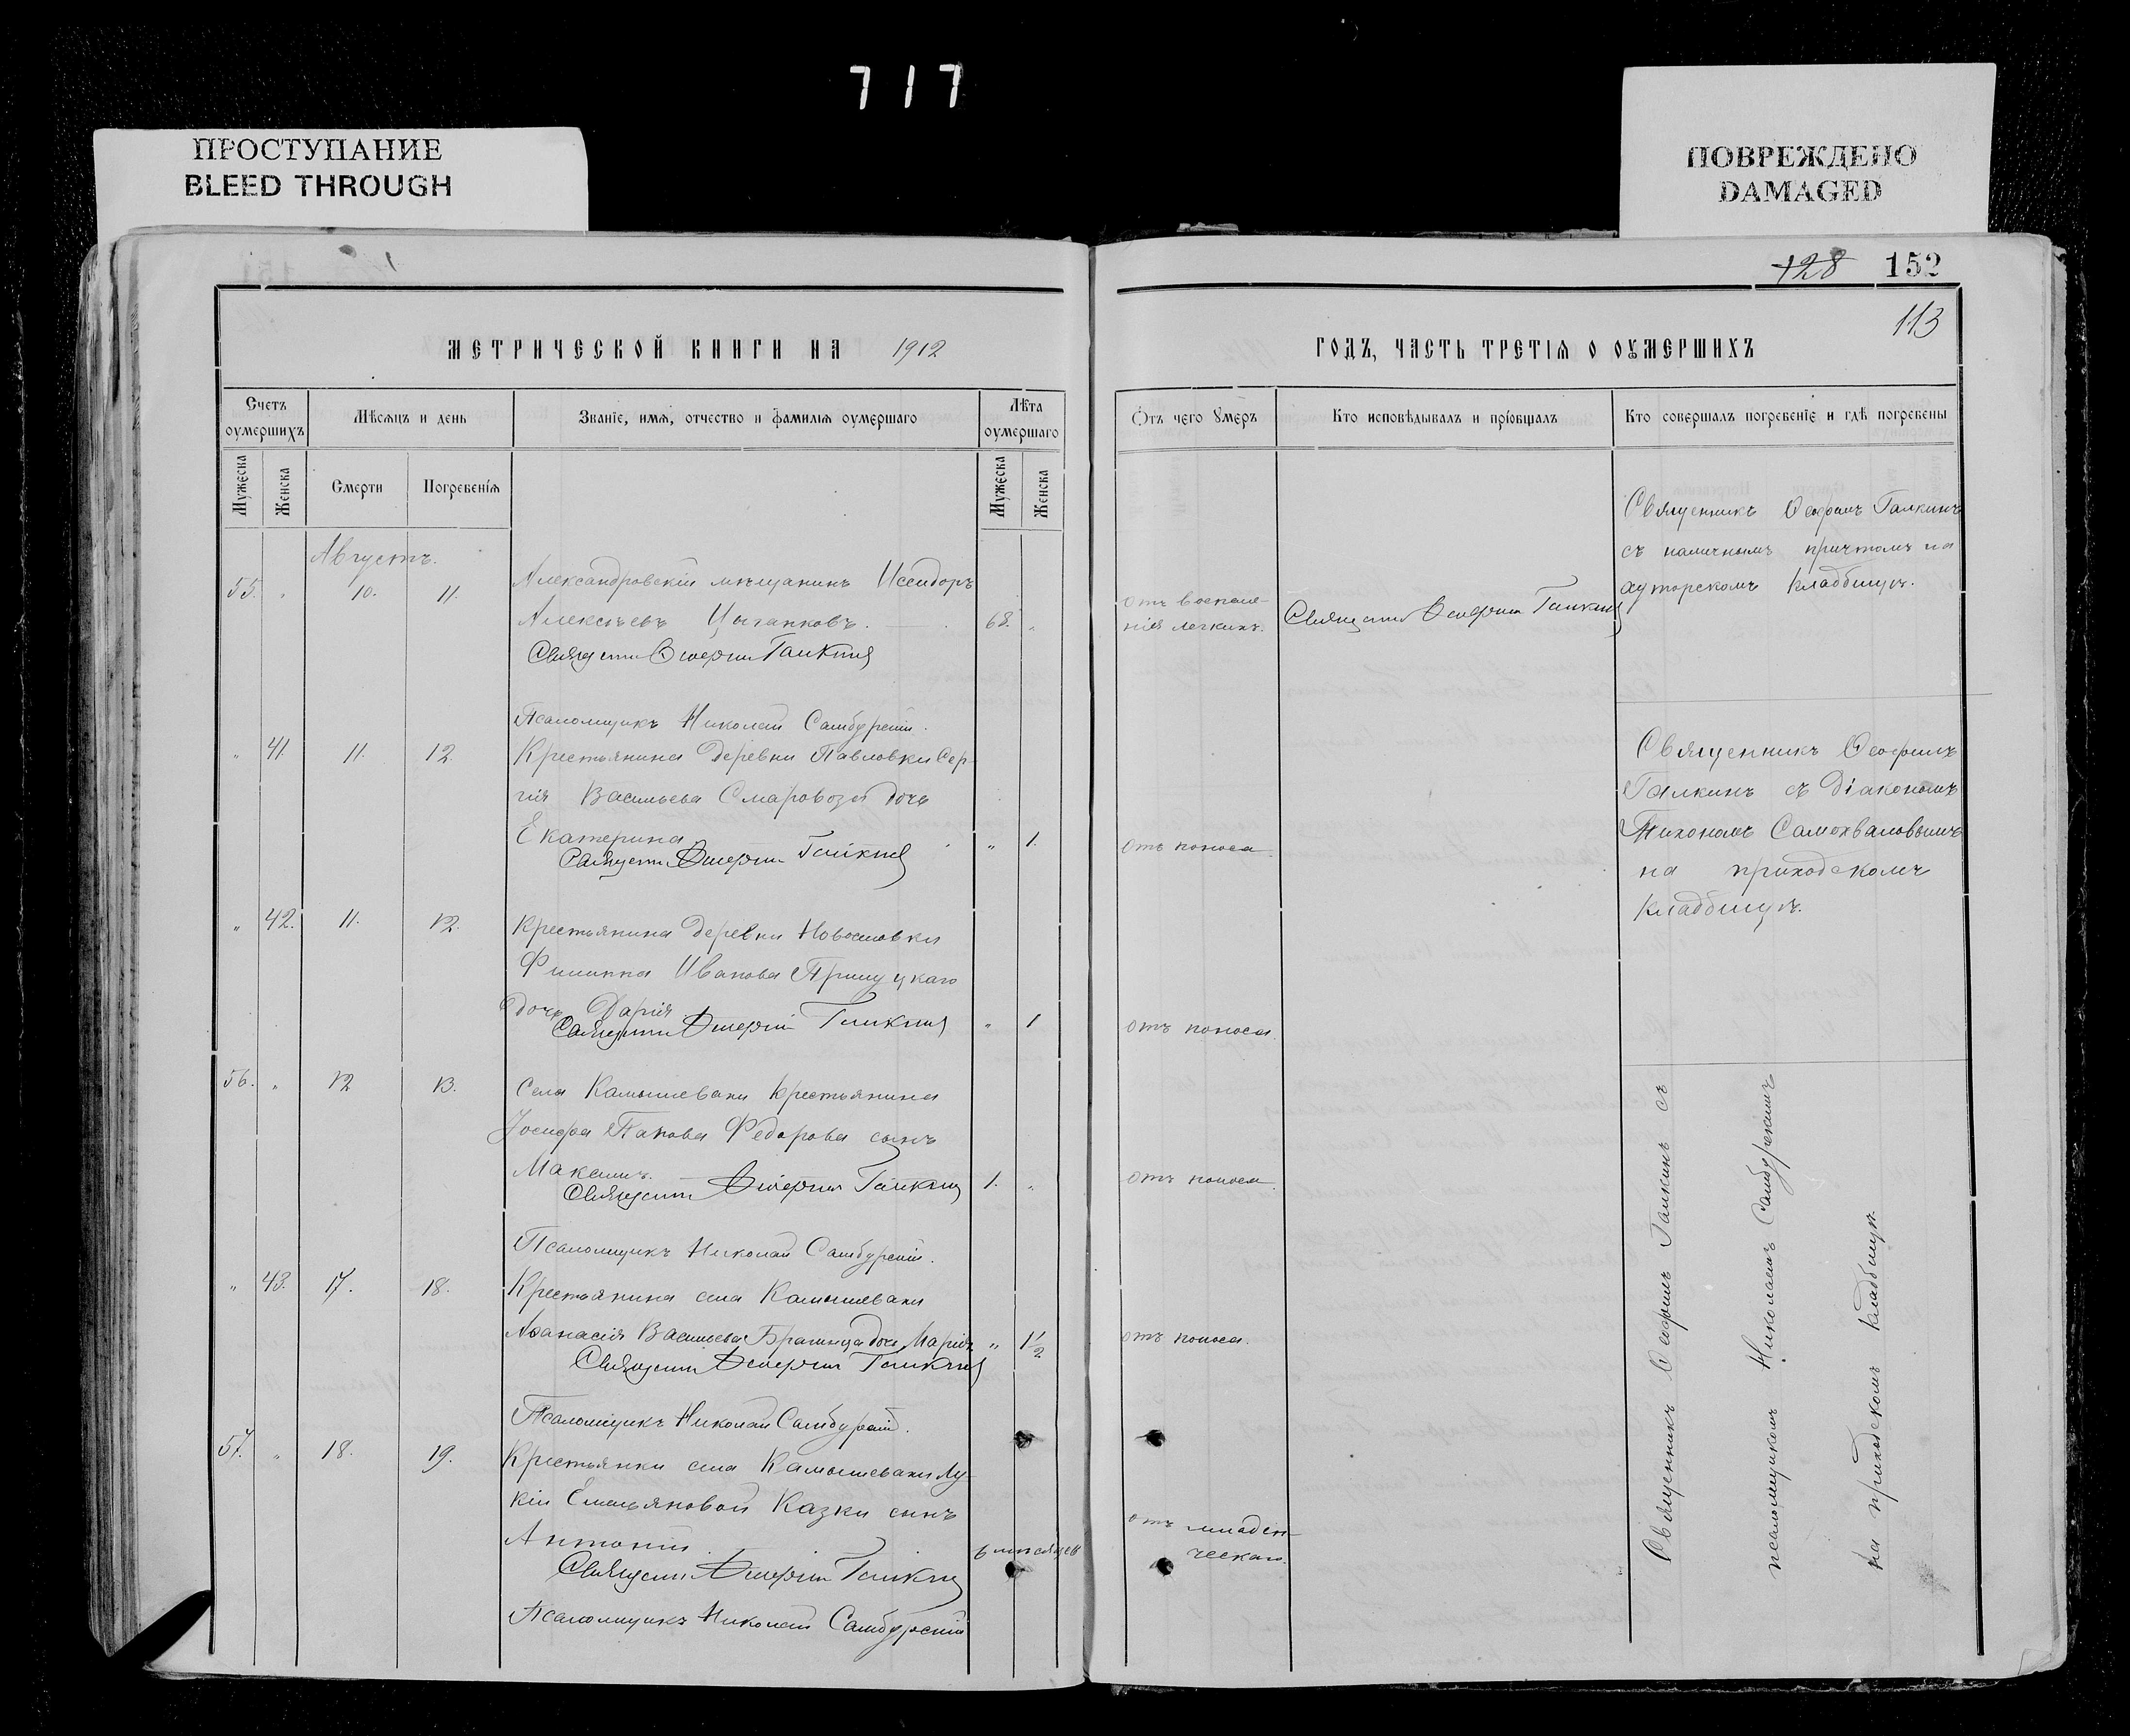 717
ПРОСТУПАНИЕ
BLEED THROUGH
ПОВРЕЖДЕНО
DAMAGED
128 152
113
МЕТРИЧЕСКОЙ КНИГИ НА 1912
ГОДЪ, ЧАСТЬ ТРЕТІЯ О ОУМЕРШИХЪ
Счетъ оумершихъ
Мѣсяцъ и день
Званіе, имя, отчество и фамилія оумершаго
Лѣта оумершаго
Отъ чего умеръ
Кто исповѣдывалъ и пріобщалъ
Кто совершалъ погребеніе и гдѣ погребены
Мужеска
Женска
Смерти
Погребенія
Мужеска
Женска
Августъ.
55. " 10. 11.
Александровскій мѣщанинъ Исидоръ
Алексѣевъ Цыганковъ. 68. "
отъ воспале-
нія легкихъ.
Священникъ Ѳеофилъ Галкинъ
Священникъ Ѳеофилъ Галкинъ
съ наличнымъ причтомъ на
хуторскомъ кладбищѣ.
Священникъ Ѳеофилъ Галкинъ
Псаломщикъ Николай Самбурскій.
" 41. 11. 12.
Крестьянина деревни Павловки Сер-
гія Васильева дочь
Екатерина " 1.
отъ поноса.
Священникъ Ѳеофилъ Галкинъ
Священникъ Ѳеофилъ
Галкинъ съ діакономъ
Тихономъ Самохваловымъ
на приходскомъ
кладбищѣ.
" 42. 11. 12.
Крестьянина деревни
Филиппа Иванова
дочь Дарія " 1
отъ поноса.
Священникъ Ѳеофилъ Галкинъ
56. " 12 13.
Села Камышевахи крестьянина
Іосифа Федорова сынъ
Максимъ. 1. "
отъ поноса.
Священникъ Ѳеофилъ Галкинъ
Псаломщикъ Николай Самбурскій.
" 43. 17. 18.
Крестьянина села Камышевахи
Аѳанасія Васильева дочь Марія " 1 1/2
отъ поноса.
Священникъ Ѳеофилъ Галкинъ
Псаломщикъ Николай Самбурскій.
57. " 18. 19.
Крестьянки села Камышевахи Лу-
кіи Емельяновой Казки сынъ
Антоній. 6 мѣсяцев
отъ младен-
ческаго.
Священникъ Ѳеофилъ Галкинъ
Псаломщикъ Николай Самбурскій
Священникъ Ѳеофилъ Галкинъ съ
псаломщикомъ Николаемъ Самбурскимъ
на приходскомъ кладбищѣ.